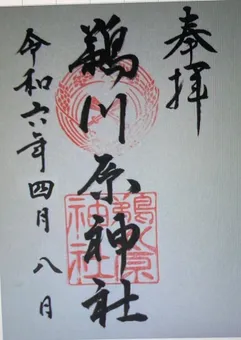 奉拝
鵜川原神社
令和六年四月八日
鵜川原神社